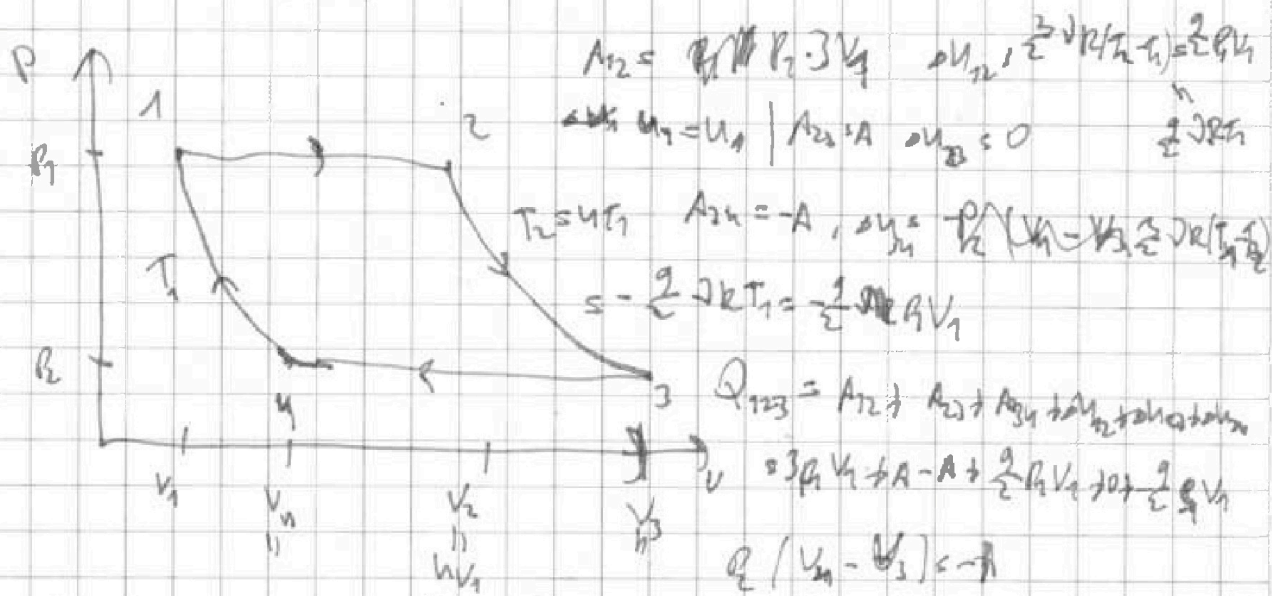 P
1
2
P₁
T₁
P₂
4
3
V
V₁
V₄
V₂
V₃
4V₁
A₁₂ = P₁·3V₁ ΔU₁₂ = 3/2 νR(T₂-T₁) = 9/2 P₁V₁
9/2 νRT₁
A₂₃ = A ΔU₂₃ = 0
T₂ = 4T₁ A₃₄ = -A, ΔU₃₄ =
= -9/2 νRT₁ = -9/2 P₁V₁
Q₁₂₃ = A₁₂ + A₂₃ + A₃₄ + ΔU₁₂ + ΔU₂₃ + ΔU₃₄
= 3P₁V₁ + A - A + 9/2 P₁V₁ + 0 + -9/2 P₁V₁
P₂ (V₄ - V₃) = -A